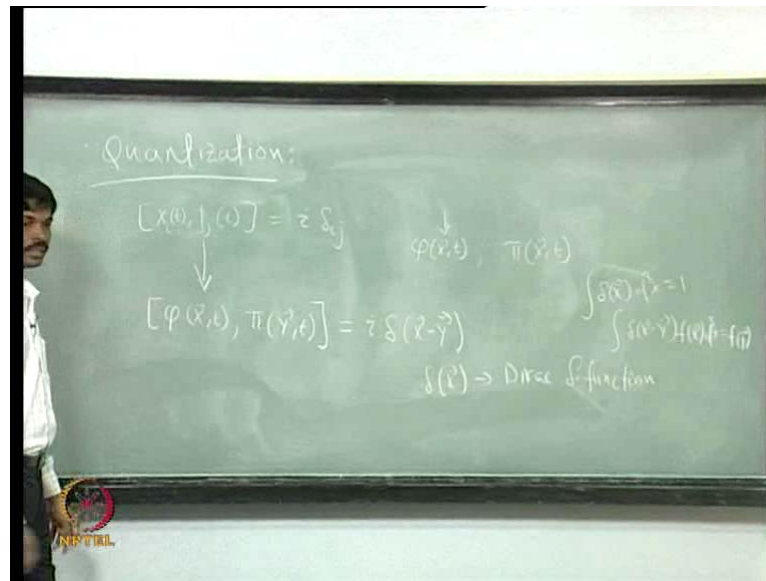 Quantization:
[x(t), p_j(t)] = i δ_ij
φ(x⃗,t), π(x⃗,t)
[φ(x⃗,t), π(y⃗,t)] = i δ(x⃗-y⃗)
∫δ(x⃗) d³x = 1
∫δ(x⃗-y⃗) f(x⃗) d³x = f(y⃗)
δ(x⃗) → Dirac δ-function
NPTEL